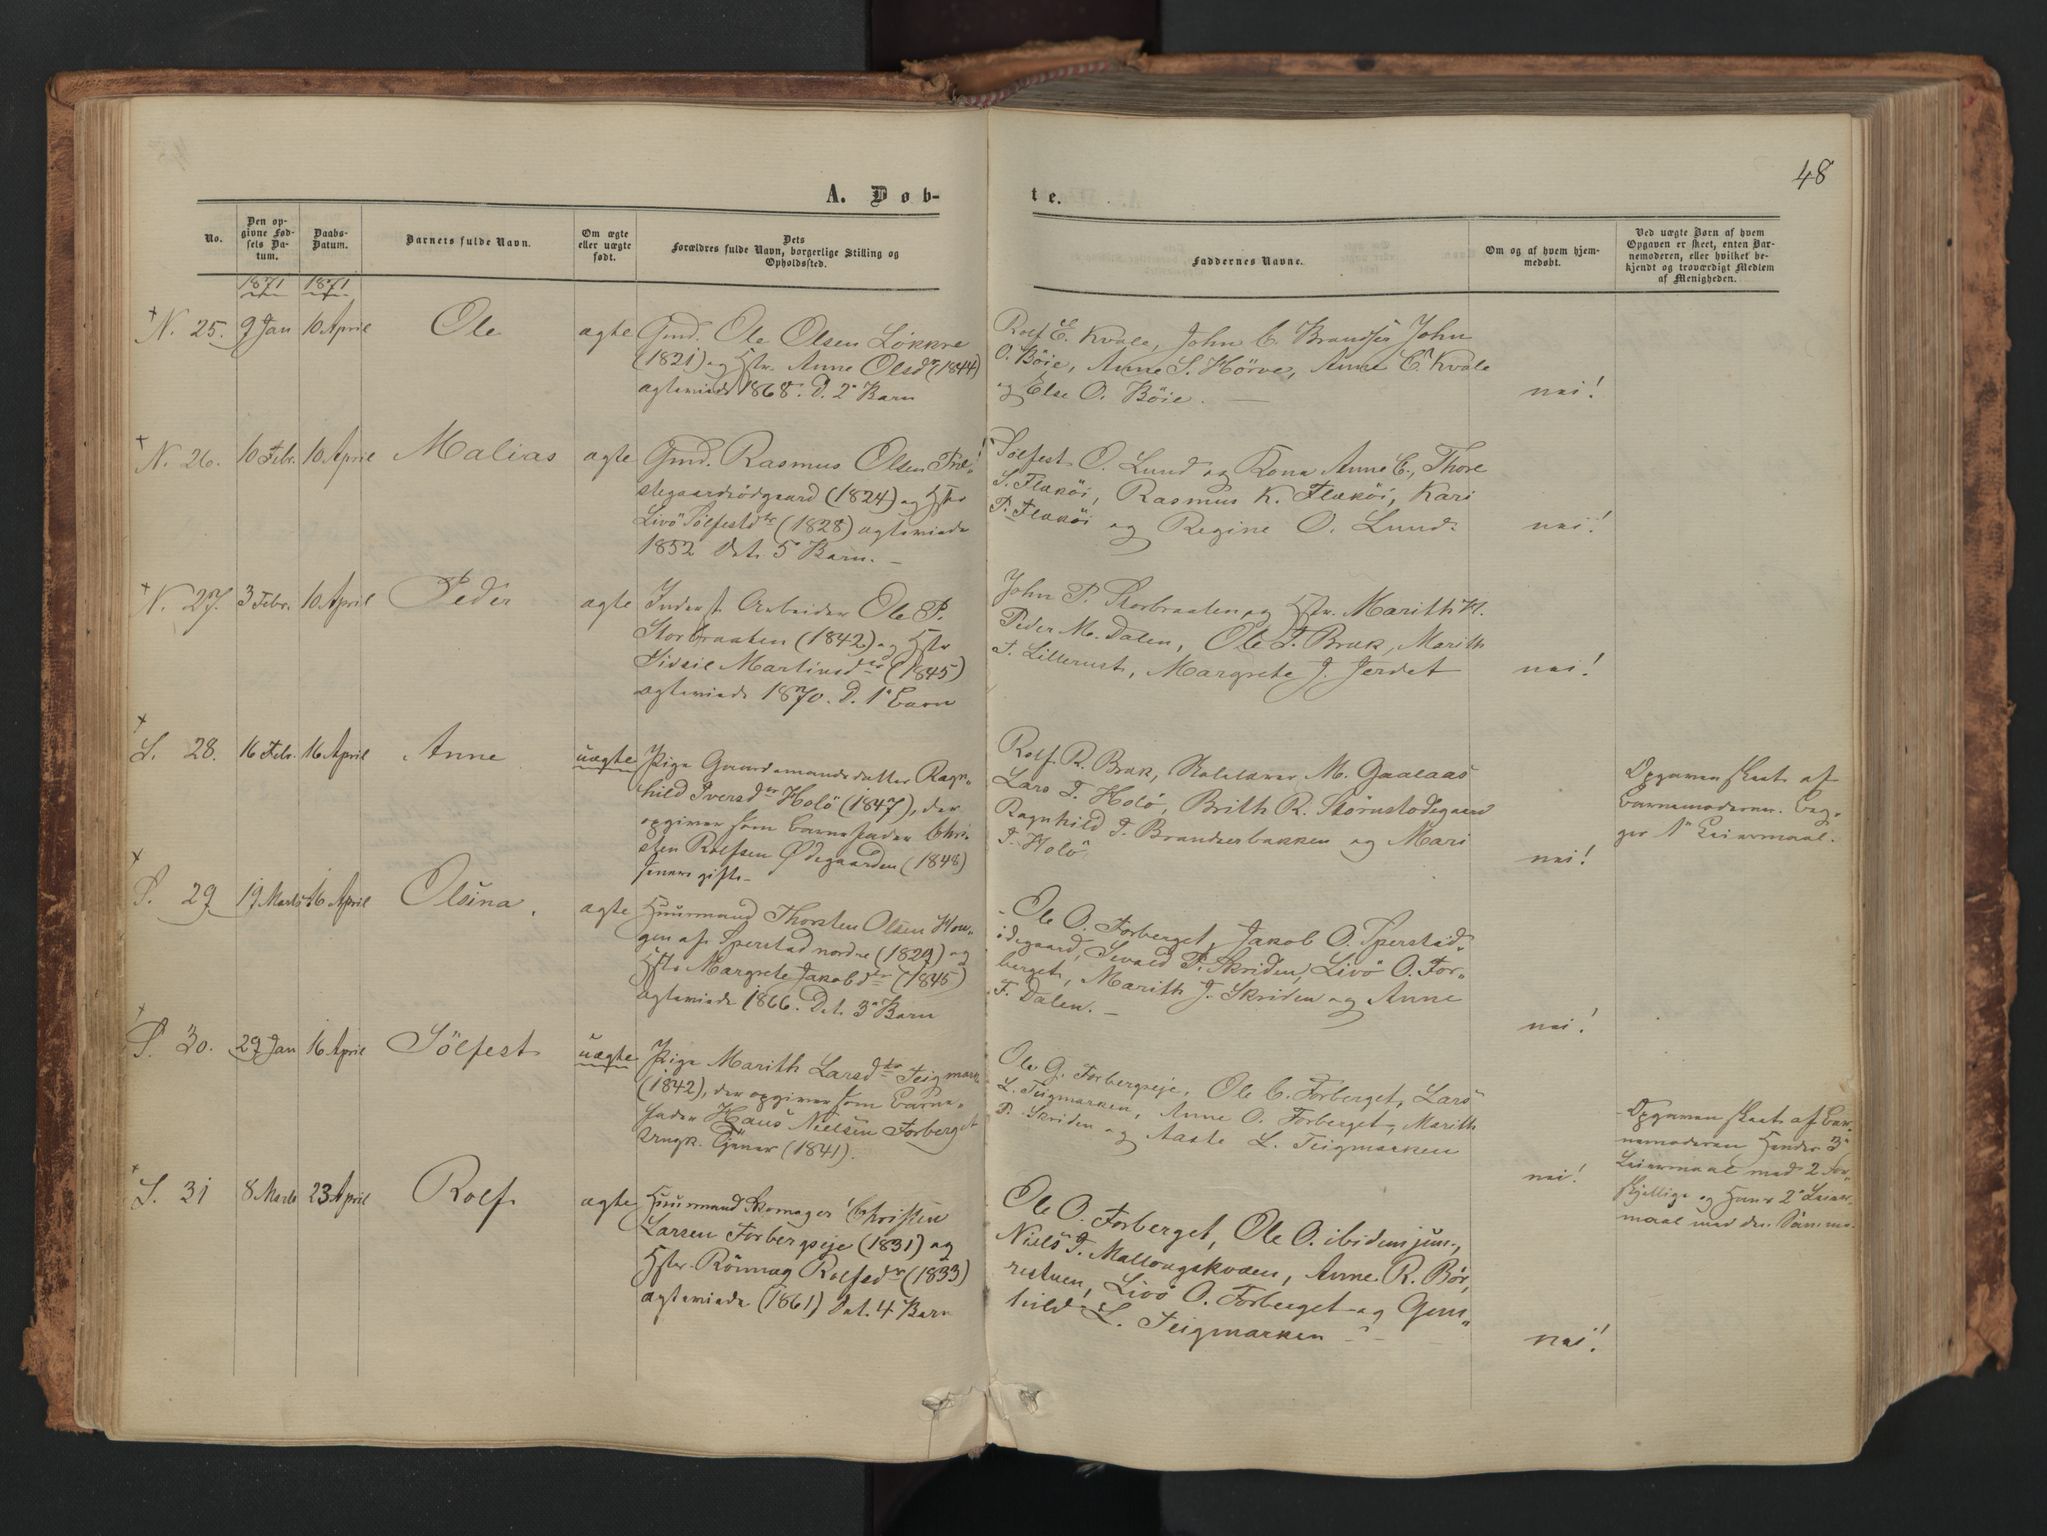 48
A. Døb-
te.
No.
Den op-
givne Fød-
sels Da-
tum.
Daabs-
Datum.
Barnets fulde Navn.
Om ægte
eller uægte
født.
Dets
Forældres fulde Navn, borgerlige Stilling og
Opholdssted.
Faddernes Navne.
Om og af hvem hjem-
medøbt.
Ved uægte Børn af hvem
Opgaven er skeet, enten Bar-
nemoderen, eller hvilket be-
kjendt og troværdigt Medlem
af Menigheden.
1871 1871
N. 25. 9 Jan 10 April Ole ægte
Gmd. Ole Olsen Løkkre
(1821) og Hstr. Anne Olsdr (1844)
ægteviede 1868. D. 2° Barn
Rolf E. Kvale, John C. John
O. Böie, Anne S. Hörve, Anne E. Kvale
og Else O. Böie.
nei!
N. 26. 10 Febr. 10 April Malias ægte
Gmd. Rasmus Olsen
(1824) og Hstr
Livö Sølfestdtr (1828) ægteviede
1852 Det 5° Barn.
Sølfest O. Lund og Kona Anne E., Thore
S. Flækøi, Rasmus K. Flækøi, Kari
P. Flækøi og Regine O. Lund.
nei!
N. 27. 3 Febr. 10 April Peder ægte
Inderst Arbeider Ole P.
Storbraaten (1842) og Hstr
Sidsil Martinsdtr (1845)
ægteviede 1870. D. 1° Barn
John P. Storbraaten og Hstr. Marith H.
Peder M. Dalen, Ole T. Bræk, Marith
T. Lillerust, Margrete J. Jerdet
nei!
L. 28. 16 Febr. 16 April Anne uægte
Pige Gaardmandsdatter Ragn-
hild Iversdtr Holö (1847), der
opgiver som Barnefader Chri-
sten Rolfsen Ødegaarden (1848)
senere gifte
Rolf R. Bræk, Skolelærer M. Gaalaas
Lars T. Holö, Brith R. Störustodegaard
Ragnhild T. Brandserbakken og Mari
T. Holö
nei!
Opgaven skeet af
Barnemoderen. Beg-
ges 1° Leiermaal.
S. 29 19 Marts 16 April Olsina. ægte
Huusmand Thorsten Olsen Hou-
gen af Sperstad nordre (1829) og
Hstr Margrete Jakobdtr (1845)
ægteviede 1866. Det 3° Barn
Ole O. Forberget, Jakob O. Sperstad-
idegaard, Sevald P. Skriden, Livö O. For-
berget, Marith J. Skriden og Anne
F. Dalen.
nei!
S. 30. 29 Jan 16 April Sölfest uægte
Pige Marith Larsdtr Teigmark
(1842), der opgiver som Barne-
fader Hans Nielsen Forberget
Ungk. Tjener (1841).
Ole G. Forbergseje, Ole C. Forberget, Lars
L. Teigmarken, Anne O. Forberget, Marith
P. Skriden og Aaste L. Teigmarken
nei!
Opgaven skeet af Bar-
nemoderen Hendes 3°
Leiermaal med 2 for-
skjellige og Hans 2° Leier-
maal med den Samme.
L. 31 8 Marts 23 April Rolf ægte
Huusmand Skomager Christen
Larsen Forbergseje (1831) og
Hstr. Rönnog Rolfsdtr (1833)
ægteviede (1861) Det 4 Barn
Ole O. Forberget, Ole O. ibidem jun.,
Niels T. Mallongskvæen, Anne R. Bör-
restuen, Livö O. Forberget og Gun-
hild L. Teigmarken
nei!